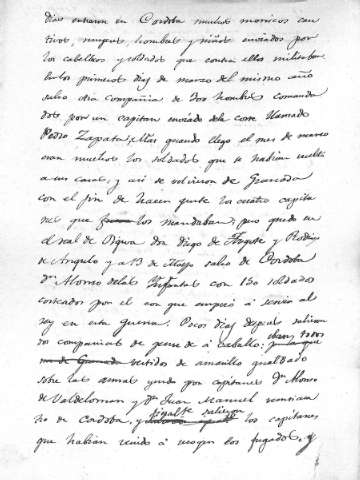 dias entraron en Cordoba muchos moriscos cau
tivos, mugeres, hombres y niños enviados por
los caballeros y soldados que contra ellos militaban.
En los primeros dias de marzo del mismo año
salio otra compañia de 200 hombres comanda
dos por un capitan enviado de la corte llamado
Pedro Zapata; Mas quando llego el mes de marzo
eran muchos los soldados que se habian vuelto
a sus casas, y asi se volvieron de Granada
con el fin de hacer gente los cuatro capita
nes que los mandaban; pero quedo en
el real de Orgiva don Diego de Argote y Rodrigo
de Angulo y a 13 de Mayo salio de Cordoba
Dn Alonso de las Infantas con 150 soldados
costeados por el con que empezó à servir al
rey en esta guerra. Pocos dias despues salieron
dos compañias de gente de à caballo; iban todos
vestidos de amarillo gualdado
sobre las armas yendo por capitanes Dn Alonso
de Valdelomar y Dn Juan Manuel veinticua
tro de Cordoba, y salieron los capitanes
que habian venido à recoger los fugados, y